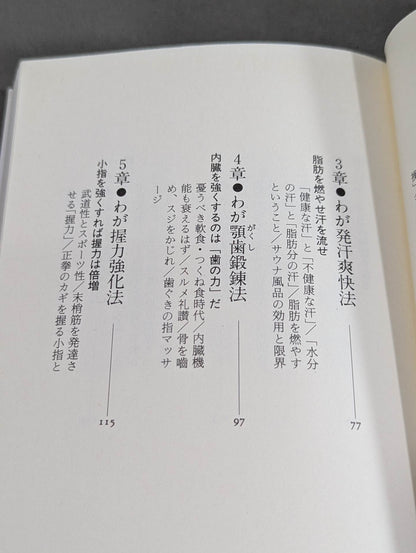 3章●わが発汗爽快法
77
脂肪を燃やせ汗を流せ
「健康な汗」と「不健康な汗」/「水分
の汗」と「脂肪分の汗」/脂肪を燃やす
ということ/サウナ風呂の効用と限界
4章●わが顎歯鍛錬法
がくし
97
内臓を強くするのは「歯の力」だ
憂うべき軟食・つくね食時代/内臓機
能も衰えるはず/スルメ礼讃/骨を嚙
め、スジをかじれ/歯ぐきの指マッサ
ージ
5章●わが握力強化法
115
小指を強くすれば握力は倍増
武道性とスポーツ性/末梢筋を発達さ
せる「握力」/正拳のカギを握る小指と